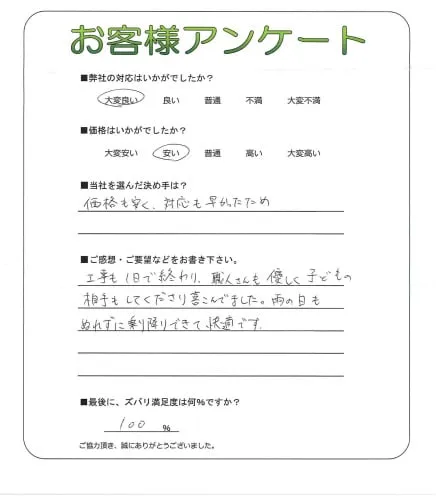 お客様アンケート
■弊社の対応はいかがでしたか？
大変良い 良い 普通 不満 大変不満
■価格はいかがでしたか？
大変安い 安い 普通 高い 大変高い
■当社を選んだ決め手は？
価格も安く、対応も早かったため
■ご感想・ご要望などをお書き下さい。
工事も1日で終わり、職人さんも優しく子どもの
相手もしてくださり喜こんでました。雨の日も
ぬれずに乗り降りできて快適です。
■最後に、ズバリ満足度は何％ですか？
100 %
ご協力頂き、誠にありがとうございました。